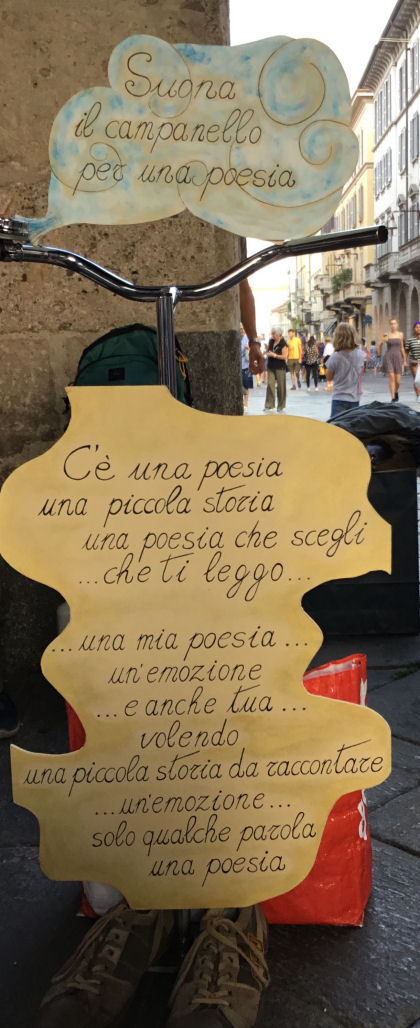 Suona
il campanello
per una poesia
C'è una poesia
una piccola storia
una poesia che scegli
...che ti leggo...
...una mia poesia...
un'emozione
...e anche tua...
volendo
una piccola storia da raccontare
...un'emozione...
solo qualche parola
una poesia